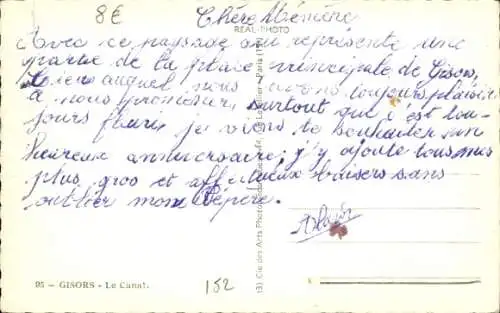 8€
Chère Mémère
REAL-PHOTO
Avec ce paysage qui représente une
partie de la place principale de Gisors,
lieu auquel nous avons toujours plaisir
à nous promener, surtout que c'est tou-
jours fleuri, je viens te souhaiter un
heureux anniversaire; j'y ajoute tous mes
plus gros et affectueux baisers sans
oublier mon Pépère.
95 - GISORS - Le Canal.
152
Cie des Arts Photo
Paris